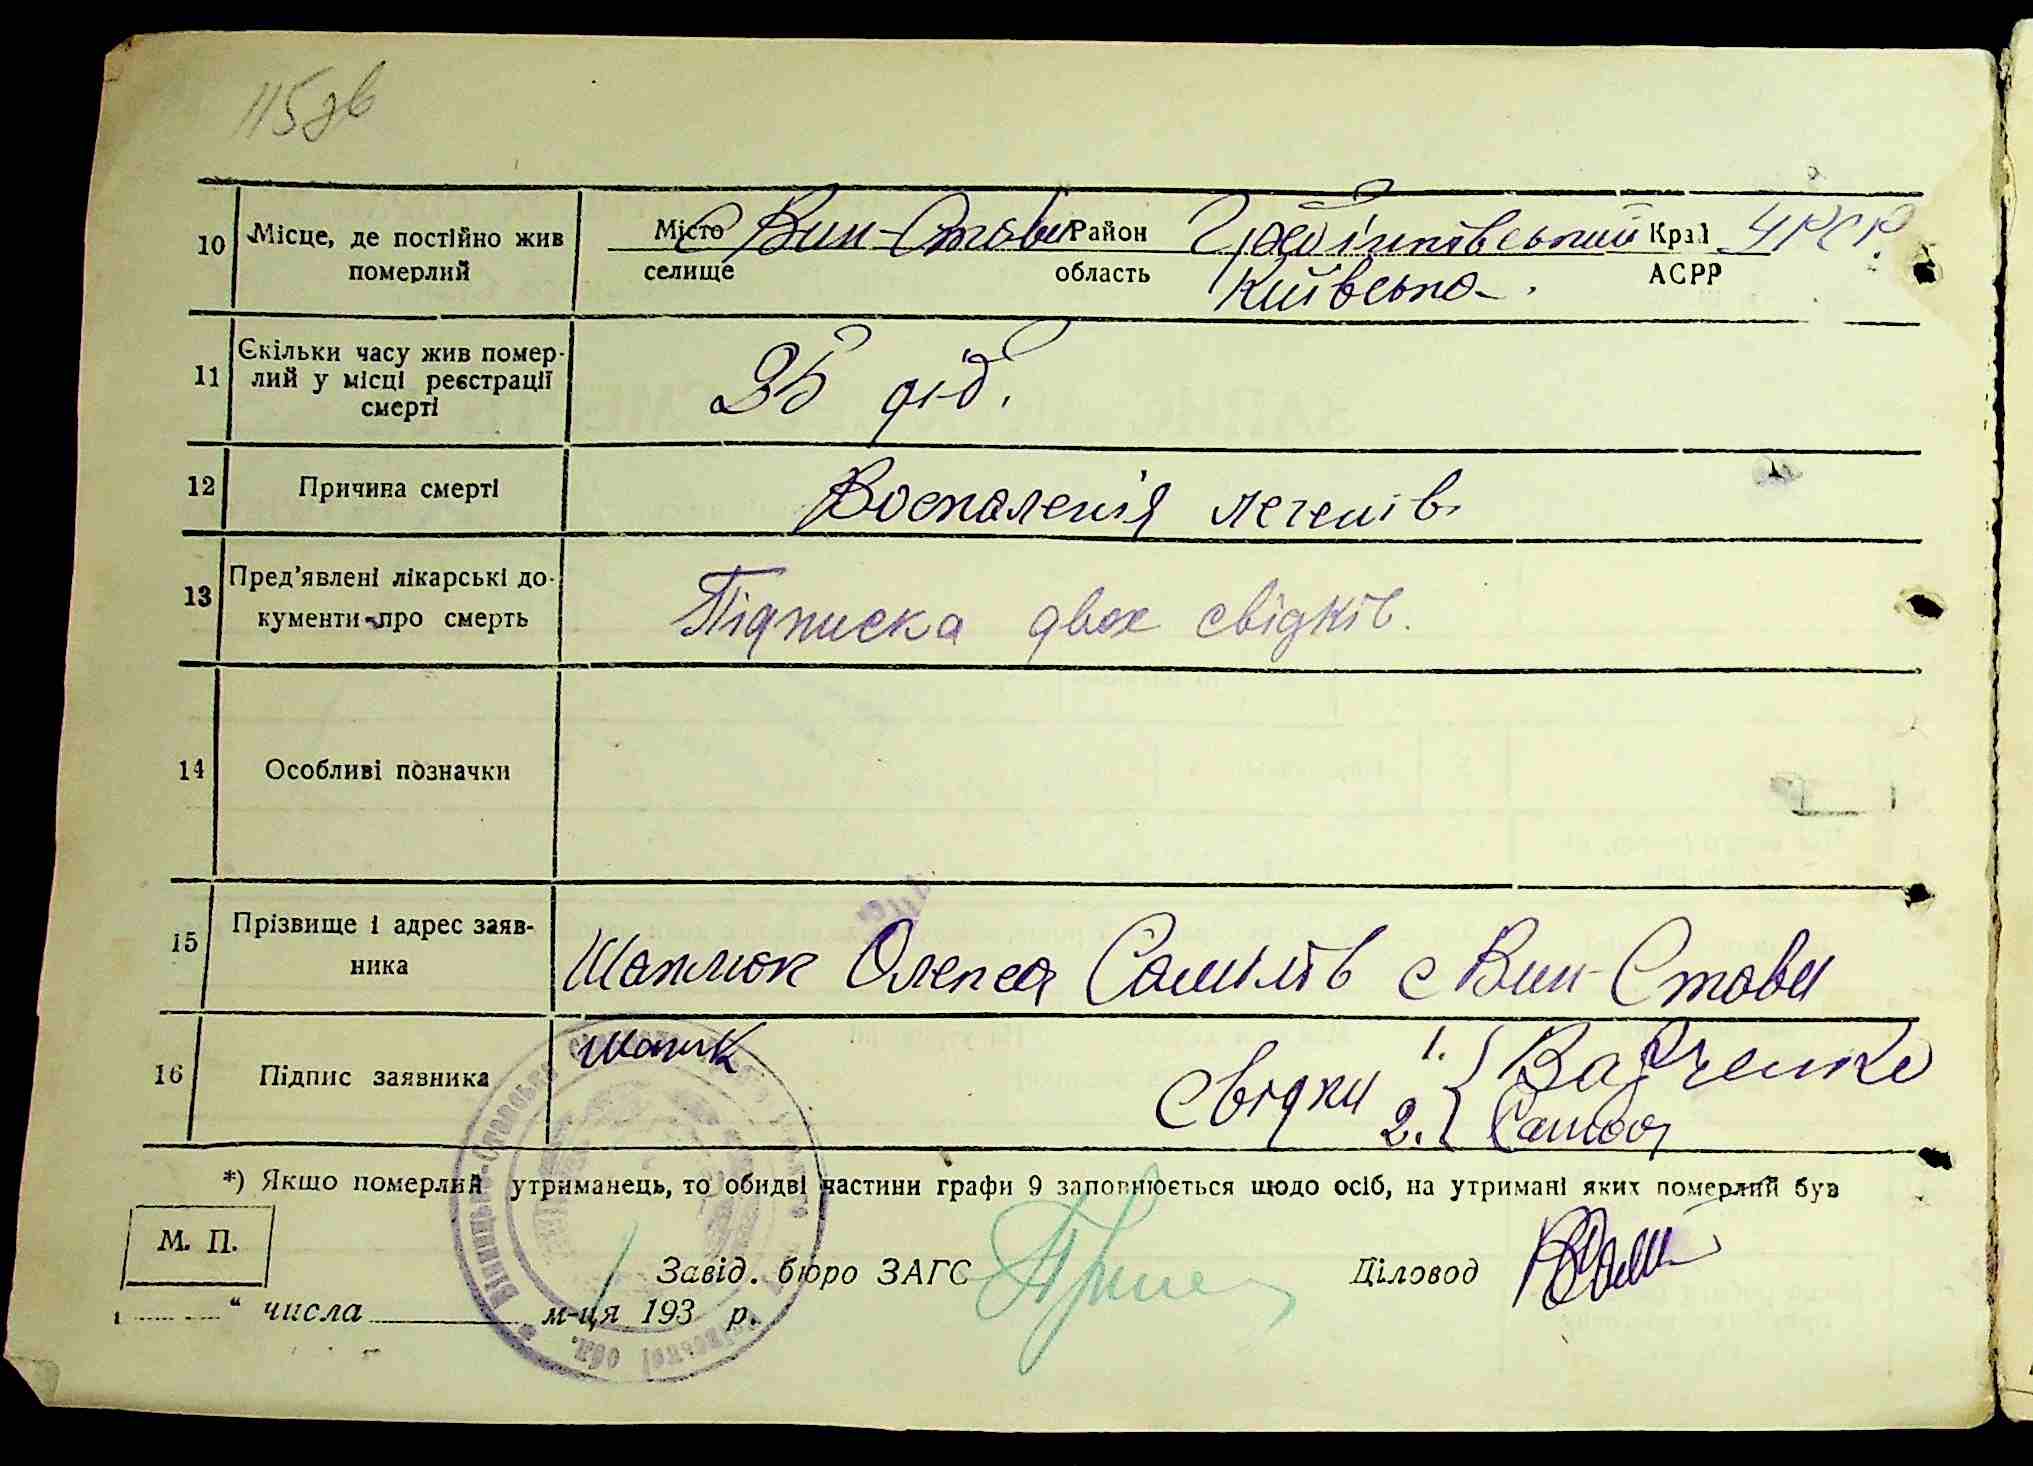 115зв
10 Місце, де постійно жив померлий Місто селище с Вин-Стави Район область Гребінківський Київська. Край АСРР УРСР.
11 Скільки часу жив помер-
лий у місці реєстрації
смерті
35 діб.
12 Причина смерті Воспаленія легенів.
13 Пред'явлені лікарські до-
кументи про смерть
Підписка двох свідків.
14 Особливі позначки
15 Прізвище і адрес заяв-
ника
Шаплюк Олекса Самілів с Вин-Стави
16 Підпис заявника
свідки 1.
2.
*) Якщо померлий утриманець, то обидві частини графи 9 заповнюється щодо осіб, на утримані яких померлий був
М. П.
Завід. бюро ЗАГС Діловод
" числа м-ця 193 р.